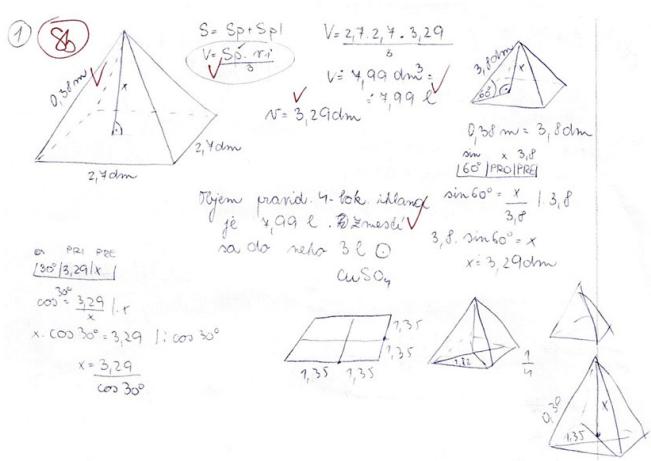 1
8b
S = Sp + Spl
V = Sp · v
3
V = 2,7 . 2,7 . 3,29
3
V = 7,99 dm³ =
= 7,99 l
v = 3,29 dm
0,38 m
x
2,7 dm
2,7 dm
3,8 dm
x
60°
0,38 m = 3,8 dm
sin x 3,8
60° | PRO | PRE
sin 60° = x / 3,8 | . 3,8
3,8 . sin 60° = x
x = 3,29 dm
Objem pravid. 4-bok. ihlana
je 7,99 l . Zmestí
sa do neho 3 l
CuSO₄
PRI PRE
30° | 3,29 | x
cos 30° = 3,29 / x | . x
x . cos 30° = 3,29 | : cos 30°
x = 3,29
cos 30°
1,35
1,35
1,35 1,35
1/4
0,38
x
1,35